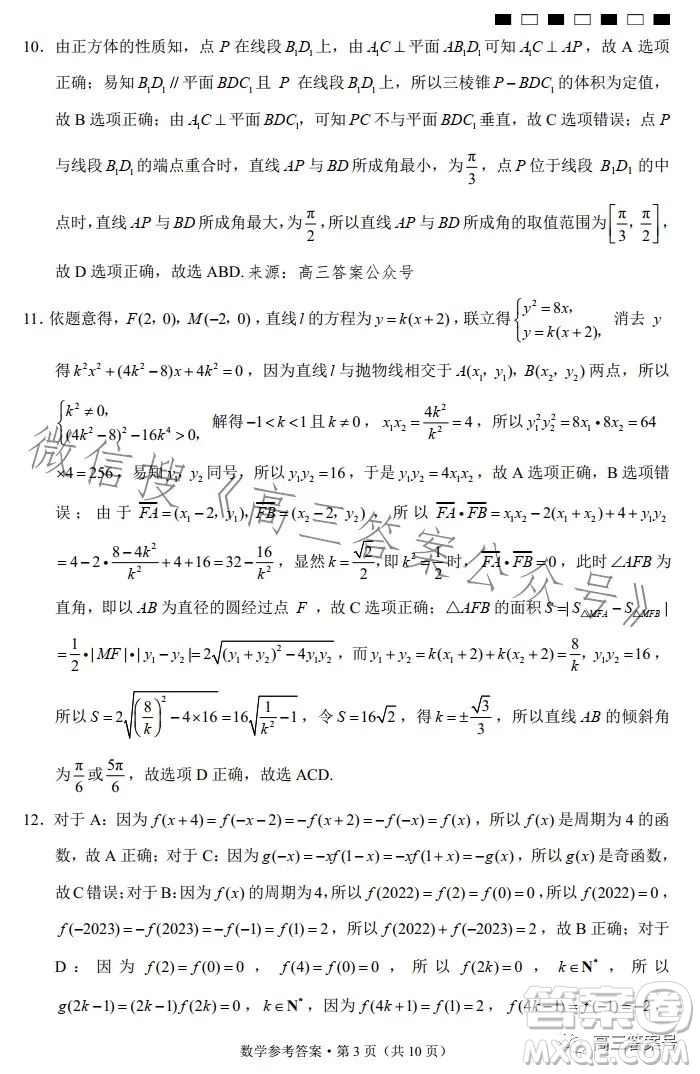 10. 由正方体的性质知，点 P 在线段 B₁D₁ 上，由 A₁C⊥平面 AB₁D₁ 可知 A₁C⊥AP，故 A 选项
正确；易知 B₁D₁ // 平面 BDC₁ 且 P 在线段 B₁D₁ 上，所以三棱锥 P－BDC₁ 的体积为定值，
故 B 选项正确；由 A₁C⊥平面 BDC₁，可知 PC 不与平面 BDC₁ 垂直，故 C 选项错误；点 P
与线段 B₁D₁ 的端点重合时，直线 AP 与 BD 所成角最小，为 π/3，点 P 位于线段 B₁D₁ 的中
点时，直线 AP 与 BD 所成角最大，为 π/2，所以直线 AP 与 BD 所成角的取值范围为 [π/3，π/2]，
故 D 选项正确，故选 ABD. 来源：高三答案公众号
11. 依题意得，F(2, 0)，M(−2, 0)，直线 l 的方程为 y=k(x+2)，联立得 {y²=8x, y=k(x+2), 消去 y
得 k²x²+(4k²−8)x+4k²=0，因为直线 l 与抛物线相交于 A(x₁，y₁)，B(x₂，y₂) 两点，所以
{k²≠0, (4k²−8)²−16k⁴>0, 解得 −1<k<1 且 k≠0，x₁x₂=4k²/k²=4，所以 y₁²y₂²=8x₁•8x₂=64
×4=256，易知 y₁，y₂ 同号，所以 y₁y₂=16，于是 y₁y₂=4x₁x₂，故 A 选项正确，B 选项错
误；由于 FA=(x₁−2，y₁)，FB=(x₂−2，y₂)，所以 FA•FB=x₁x₂−2(x₁+x₂)+4+y₁y₂
=4−2•(8−4k²)/k²+4+16=32−16/k²，显然 k=√2/2，即 k²=1/2 时，FA•FB=0，此时 ∠AFB 为
直角，即以 AB 为直径的圆经过点 F，故 C 选项正确；△AFB 的面积 S=|S△MFA−S△MFB|
=1/2•|MF|•|y₁−y₂|=2√((y₁+y₂)²−4y₁y₂)，而 y₁+y₂=k(x₁+2)+k(x₂+2)=8/k，y₁y₂=16，
所以 S=2√((8/k)²−4×16)=16√(1/k²−1)，令 S=16√2，得 k=±√3/3，所以直线 AB 的倾斜角
为 π/6 或 5π/6，故选项 D 正确，故选 ACD.
12. 对于 A：因为 f(x+4)=f(−x−2)=−f(x+2)=−f(−x)=f(x)，所以 f(x) 是周期为 4 的函
数，故 A 正确；对于 C：因为 g(−x)=−xf(1−x)=−xf(1+x)=−g(x)，所以 g(x) 是奇函数，
故 C 错误；对于 B：因为 f(x) 的周期为 4，所以 f(2022)=f(2)=f(0)=0，所以 f(2022)=0，
f(−2023)=−f(2023)=−f(−1)=f(1)=2，所以 f(2022)+f(−2023)=2，故 B 正确；对于
D：因为 f(2)=f(0)=0，f(4)=f(0)=0，所以 f(2k)=0，k∈N*，所以
g(2k−1)=(2k−1)f(2k)=0，k∈N*，因为 f(4k+1)=f(1)=2，f(4k−1)=f(−1)=−2，
数学参考答案·第 3 页（共 10 页）
微信搜《高三答案公众号》
高三答案号
答案圈
MXQE.COM